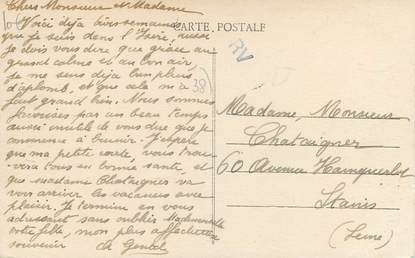 Chers Monsieur et Madame
Voici déjà trois semaines
que je suis dans l'Isère, aussi
je dois vous dire que grâce au
grand calme et au bon air,
je me sens déjà bien plus
d'aplomb, et que cela m'a
fait grand bien. Nous sommes
favorisés par un beau temps
aussi inutile de vous dire que je
commence à brunir. J'espère
que ma petite carte, vous trou-
vera tous en bonne santé, et
que madame Chataignier va
voir arriver les vacances avec
plaisir. Je termine en vous
adressant sans oublier Mademoiselle
votre fille, mon plus affectueux
souvenir
CARTE POSTALE
38
Madame, Monsieur
Chataignier
60 Avenue
Stains
(Seine)